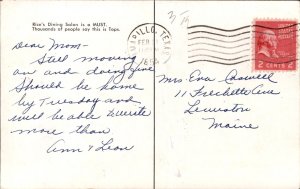 Rice's Dining Salon is a MUST.
Thousands of people say this is Tops.
AMARILLO, TEXAS
FEB
195
2 CENTS 2
Dear Mom-
Still moving
on and doing fine
Should be home
by Tuesday and
will be able to write
more then
Ann & Leon
Mrs. Eva Caswell
11 Frechette Ave
Lewiston
Maine